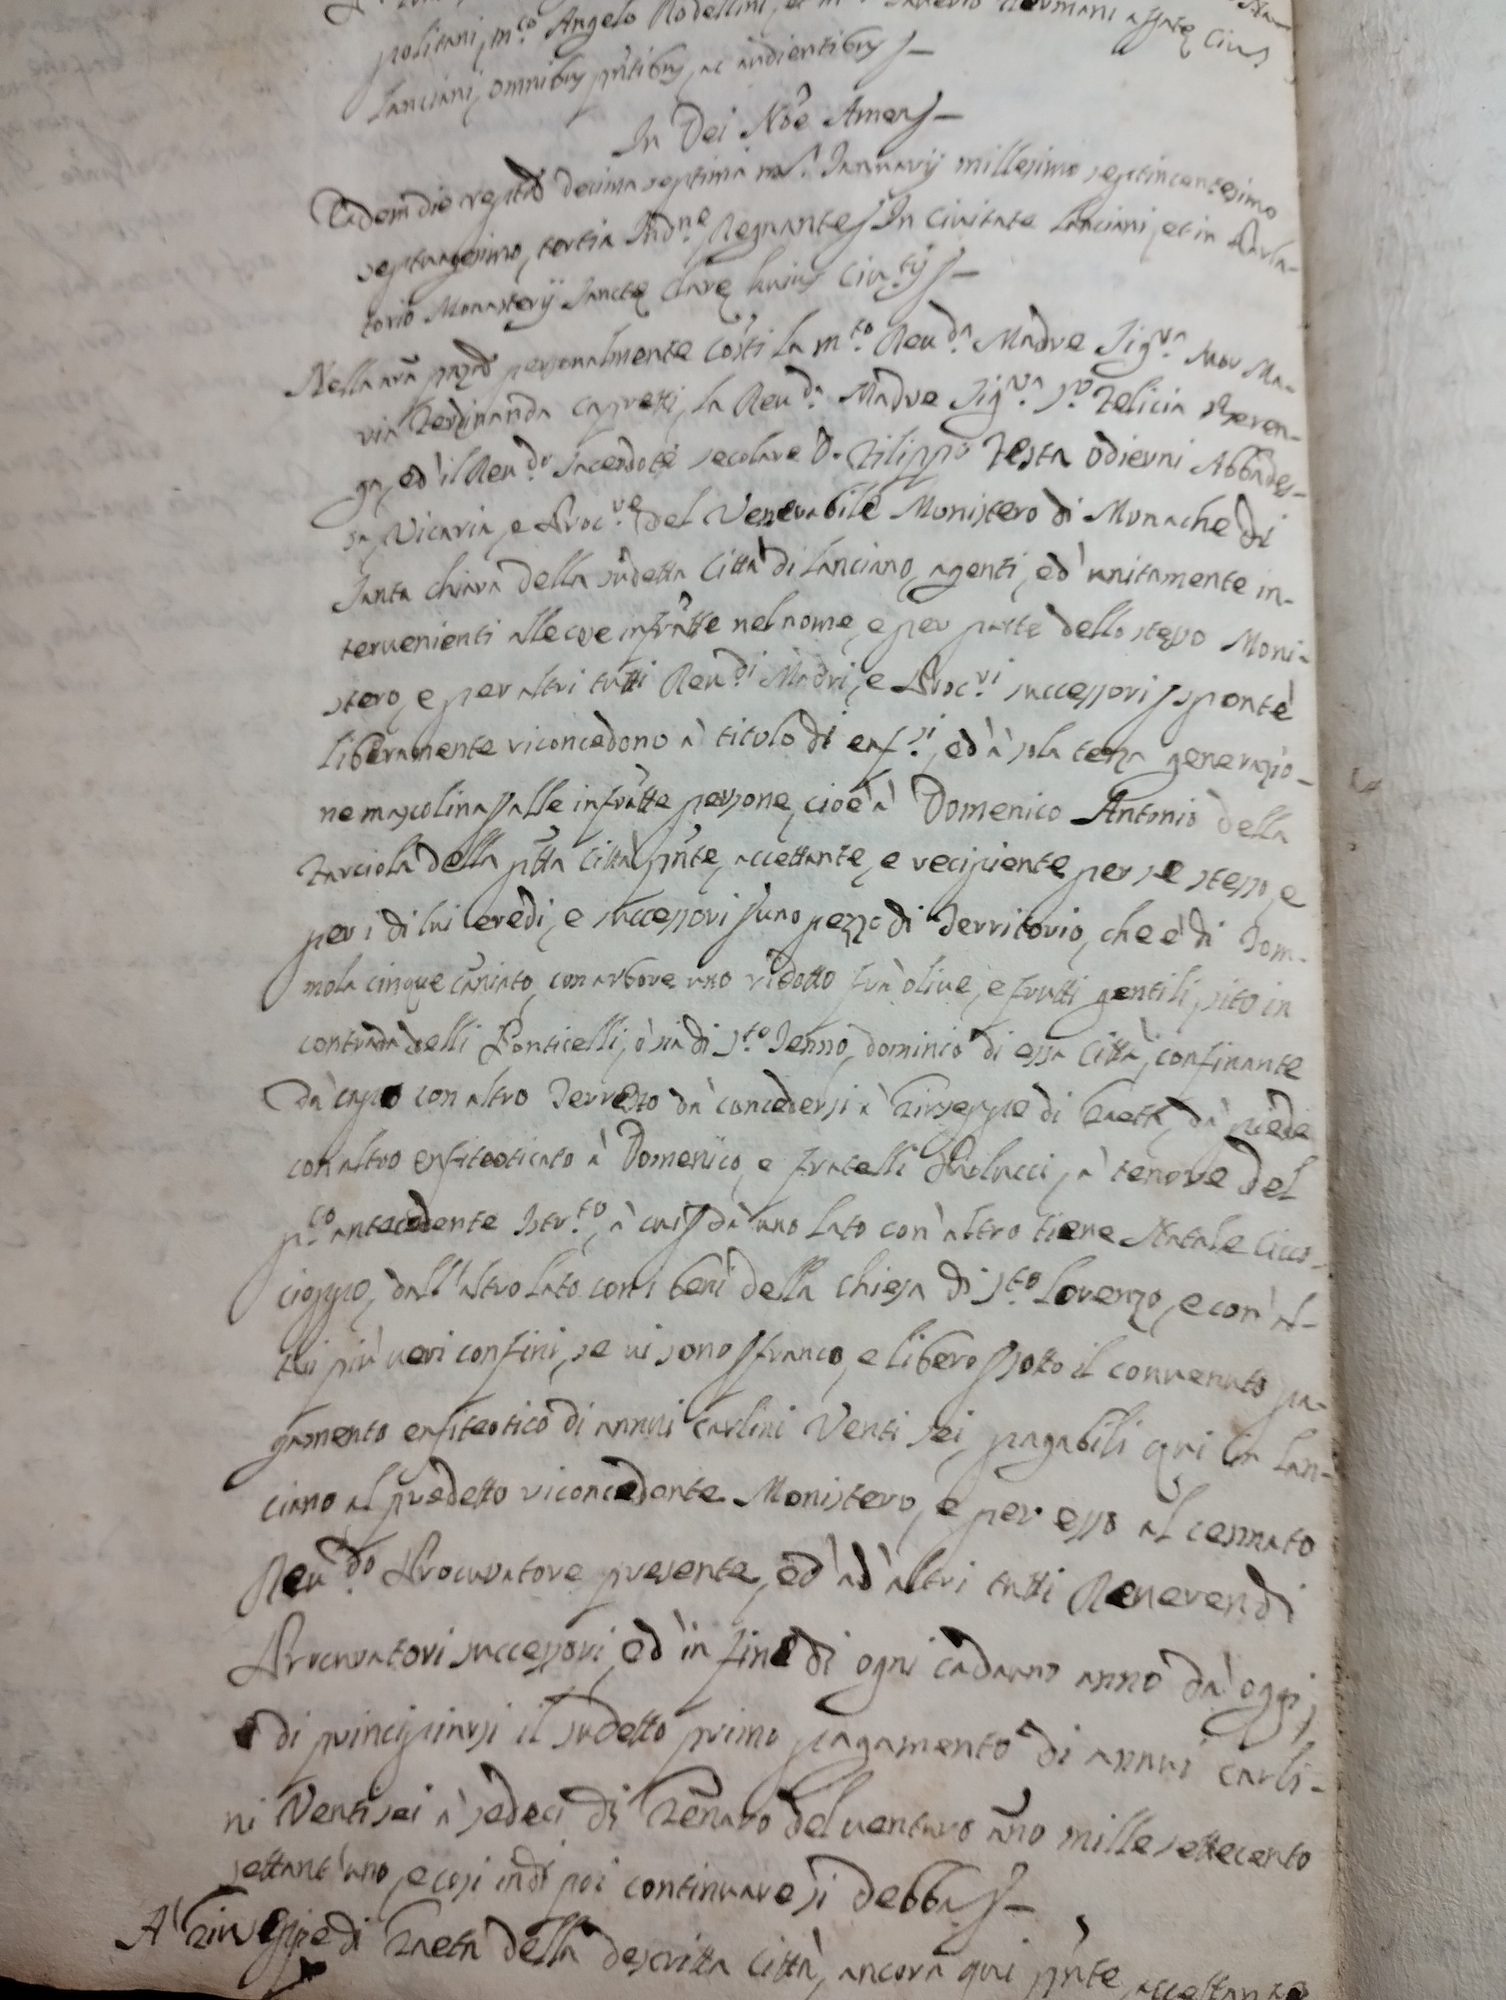 politani, m.co Angelo Rodellini, et m.co Saverio assate Cius
Lanciani, omnibus pñtibus, ac audientibus
In Dei Nõe Amen
Eadem die decima septima m.s Januarij millesimo septincentesimo
septuagesimo, tertia Ind.ne Regnante In Civitate Lanciani, et in Parla-
torio Monasterij Sanctę Clarę huius Civ.tis
Nella personalmente Costi la m.to Reu.da Madre Sig.ra Suor Ma-
ria Ferdinanda Caporetti, la Reu.da Madre Sig.ra S.r Felicia
ga, ed' il Reu.do Sacerdote secolare D. Filippo Testa odierni Abbades-
sa, Vicaria, e Proc.re del Venerabile Monistero di Monache di
Santa Chiara della sudetta Città di Lanciano, agenti, ed' unitamente in-
teruenienti alle cose infratte nel nome, e per parte dello stesso Moni-
stero, e per altri tutti Reu.di Madri, e Proc.ri successori, sponte
liberamente riconcedono à titulo di enf.si, ed' à sola terza generazio-
ne mascolina alle infratte persone, cioè à Domenico Antonio della
Farciola della pñtta Città pñte, accettante, e recipiente per se stesso, e
per i di lui eredi, e successori uno pezzo di Territorio, che è di Tom-
mola cinque cantato, con arbore uno ridotto frà olive, e frutti gentili, sito in
contrada delli Ponticelli, ò sia di S.to Jenno, dominio di essa Città, confinante
dà capo con altro Terreno dà concedersi à Giuseppe di Gaeta, dà piede
con altro enfiteoticato à Domenico, e fratelli Paolucci, à tenore del
p.co antecedente Istr.to, à cui dà uno lato con' altro tiene Natale Cicco-
cioppo, dall' altro lato con i beni della Chiesa di S.to Lorenzo, e con' al-
tri più veri confini, se ui sono franco, e libero sotto il conuenuto pa-
gamento enfiteotico di annui carlini Venti sei, pagabili qui in Lan-
ciano al predetto riconcedente Monistero, e per esso al cennato
Reu.do Procuratore presente, ed' ad' altri tutti Reuerendi
Procuratori successori, ed' in fine di ogni cadauno anno dà oggi,
e di principiarsi il sudetto primo pagamento di annui carli-
ni Ventisei à sedeci di Gennaro del uenturo año mille settecento
settant'uno, e così indi poi continuare si debba
A' Giuseppe di Gaeta della descritta Città, ancora qui pñte, accettante